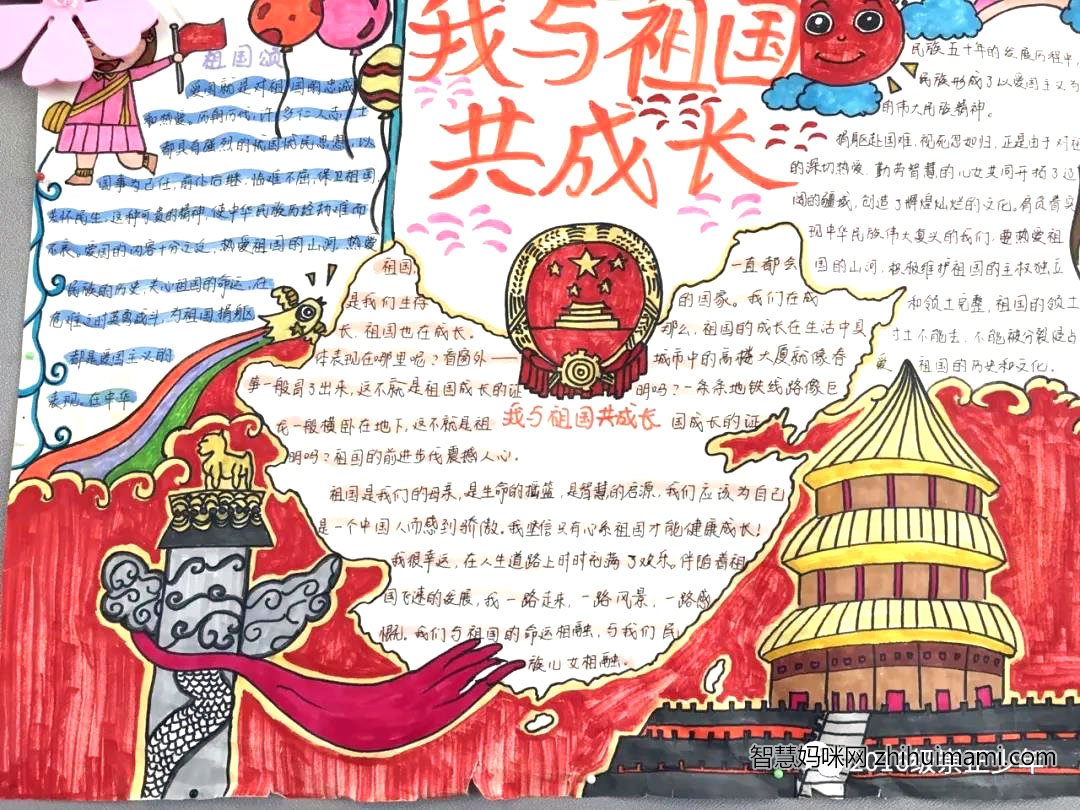 我与祖国
共成长
祖国颂
爱国就是对祖国的忠诚
和热爱。历朝历代，许多仁人志士
都具有强烈的忧国忧民思想，以
国事为己任，前仆后继，临难不屈，保卫祖国
关怀民生，这种可贵的精神，使中华民族历经劫难而
不衰。爱国的内容十分广泛，热爱祖国的山河，热爱
民族的历史，关心祖国的命运，在
危难之时英勇战斗，为祖国捐躯
都是爱国主义的
表现。在中华
民族五千年的发展历程中，
民族形成了以爱国主义为
的伟大民族精神。
捐躯赴国难，视死忽如归，正是由于对祖
的深切热爱，勤劳智慧的儿女共同开拓了辽
阔的疆域，创造了辉煌灿烂的文化。肩负着实
现中华民族伟大复兴的我们，要热爱祖
国的山河，积极维护祖国的主权独立
和领土完整，祖国的领土
寸土不能丢，不能被分裂侵占
爱 祖国的历史和文化。
祖国， 一直都会
是我们生存 的国家。我们在成
长，祖国也在成长。 那么，祖国的成长在生活中具
体表现在哪里呢？看窗外—— 城市中的高楼大厦就像春
笋一般冒了出来，这不就是祖国成长的证 明吗？一条条地铁线路像巨
龙一般横卧在地下，这不就是祖 国成长的证
明吗？祖国的前进步伐震撼人心。
我与祖国共成长
祖国是我们的母亲，是生命的摇篮，是智慧的启源，我们应该为自己
是一个中国人而感到骄傲。我坚信只有心系祖国才能健康成长！
我很幸运，在人生道路上时时充满了欢乐。伴随着祖
国飞速的发展，我一路走来，一路风景，一路感
慨，我们与祖国的命运相融，与我们民
族儿女相融。
智慧妈咪网 zhihuimami.com